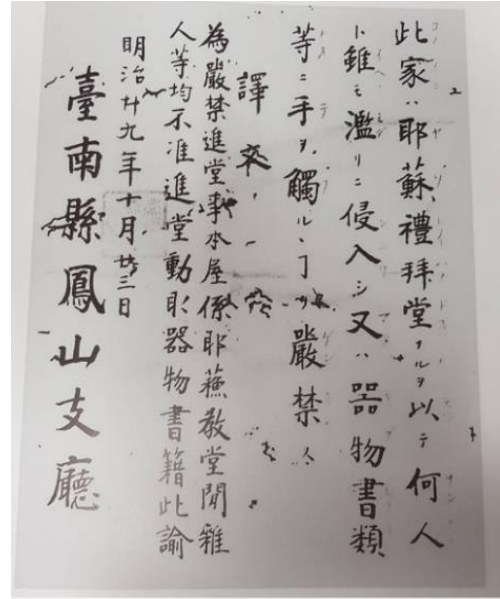 此家ハ耶蘇禮拜堂ナルヲ以テ何人
ト雖モ濫リニ侵入シ又ハ器物書類
等ニ手ヲ觸ルヽヿヲ嚴禁ス
譯
為嚴禁進堂事本屋係耶蘓教堂閒雜
人等均不准進堂動取器物書籍此諭
明治廿九年十月廿三日
臺南縣鳳山支廳